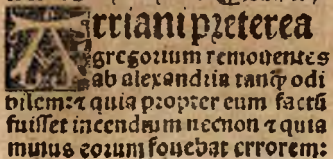 Arriani preterea
gregorium remouentes
ab alexandria tanq̃ odi
bilem: ⁊ quia propter eum factũ
fuisset incendium necnon ⁊ quia
minus eorum fouebat errorem: